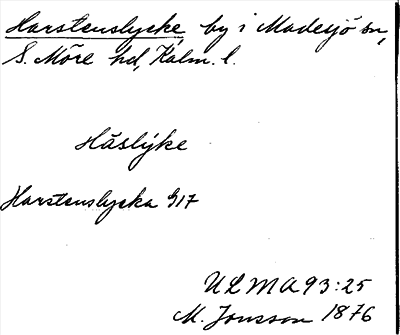 Harstenslycke, by i Madesjö sn,
S. Möre hd, Kalm. l.
Håslýke
Harstenslycka G17
ULMA 93:25
M. Jonsson 1876